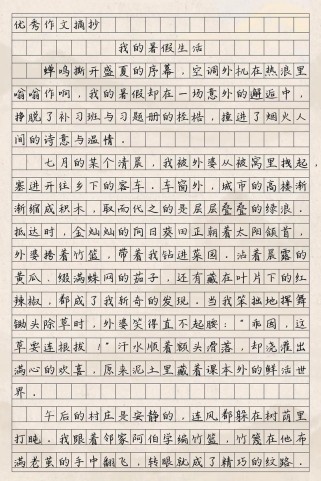 优秀作文摘抄
我的暑假生活
蝉鸣撕开盛夏的序幕，空调外机在热浪里
嗡嗡作响，我的暑假却在一场意外的邂逅中，
挣脱了补习班与习题册的桎梏，撞进了烟火人
间的诗意与温情.
七月的某个清晨，我被外婆从被窝里拽起，
塞进开往乡下的客车.车窗外，城市的高楼渐
渐缩成积木，取而代之的是层层叠叠的绿浪.
抵达时，金灿灿的向日葵田正朝着太阳颔首，
外婆挎着竹篮，带着我钻进菜园，沾着晨露的
黄瓜，缀满蛛网的茄子，还有藏在叶片下的红
辣椒，都成了我新奇的发现.当我笨拙地挥舞
锄头除草时，外婆笑得直不起腰："乖囡，这
草要连根拔！"汗水顺着额头滑落，却浇灌出
满心的欢喜，原来泥土里藏着课本外的鲜活世
界.
午后的村庄是安静的，连风都躲在树荫里
打盹.我跟着邻家阿伯学编竹篮，竹篾在他布
满老茧的手中翻飞，转眼就成了精巧的纹路.